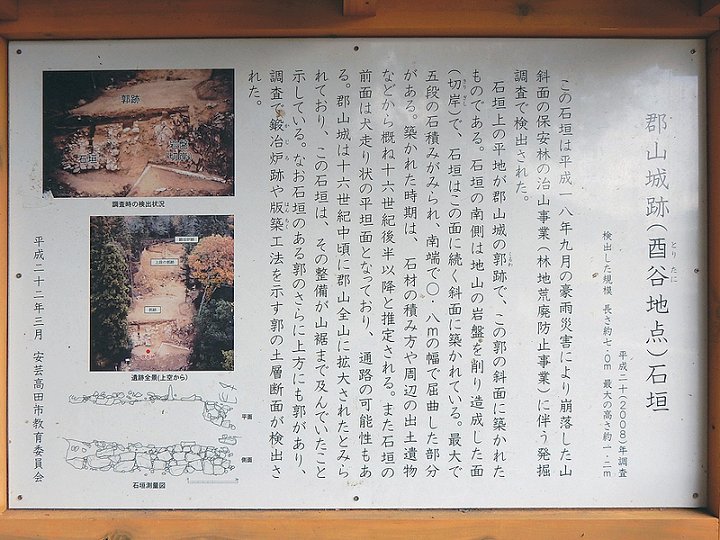 郡山城跡(酉谷地点)石垣
とりたに
平成二十(2008)年調査
検出した規模 長さ約七・〇m 最大の高さ約一・二m
この石垣は平成一八年九月の豪雨災害により崩落した山
斜面の保安林の治山事業(林地荒廃防止事業)に伴う発掘
調査で検出された。
石垣上の平地が郡山城の郭跡で、この郭の斜面に築かれた
ものである。石垣の南側は地山の岩盤を削り造成した面
(切岸)で、石垣はこの面に続く斜面に築かれている。最大で
五段の石積みがみられ、南端で〇 八mの幅で屈曲した部分
がある。築かれた時期は、石材の積み方や周辺の出土遺物
などから概ね十六世紀後半以降と推定される。また石垣の
前面は犬走り状の平坦面となっており、通路の可能性もあ
る。郡山城は十六世紀中頃に郡山全山に拡大されたとみら
れており、この石垣は、その整備が山裾まで及んでいたこと
示している。なお石垣のある郭のさらに上方にも郭があり、
調査で鍛冶炉跡や版築工法を示す郭の土層断面が検出さ
れた。
平成二十二年三月 安芸高田市教育委員会
郭跡
石垣
調査時の検出状況
遺跡全景(上空から)
平面
側面
石垣測量図